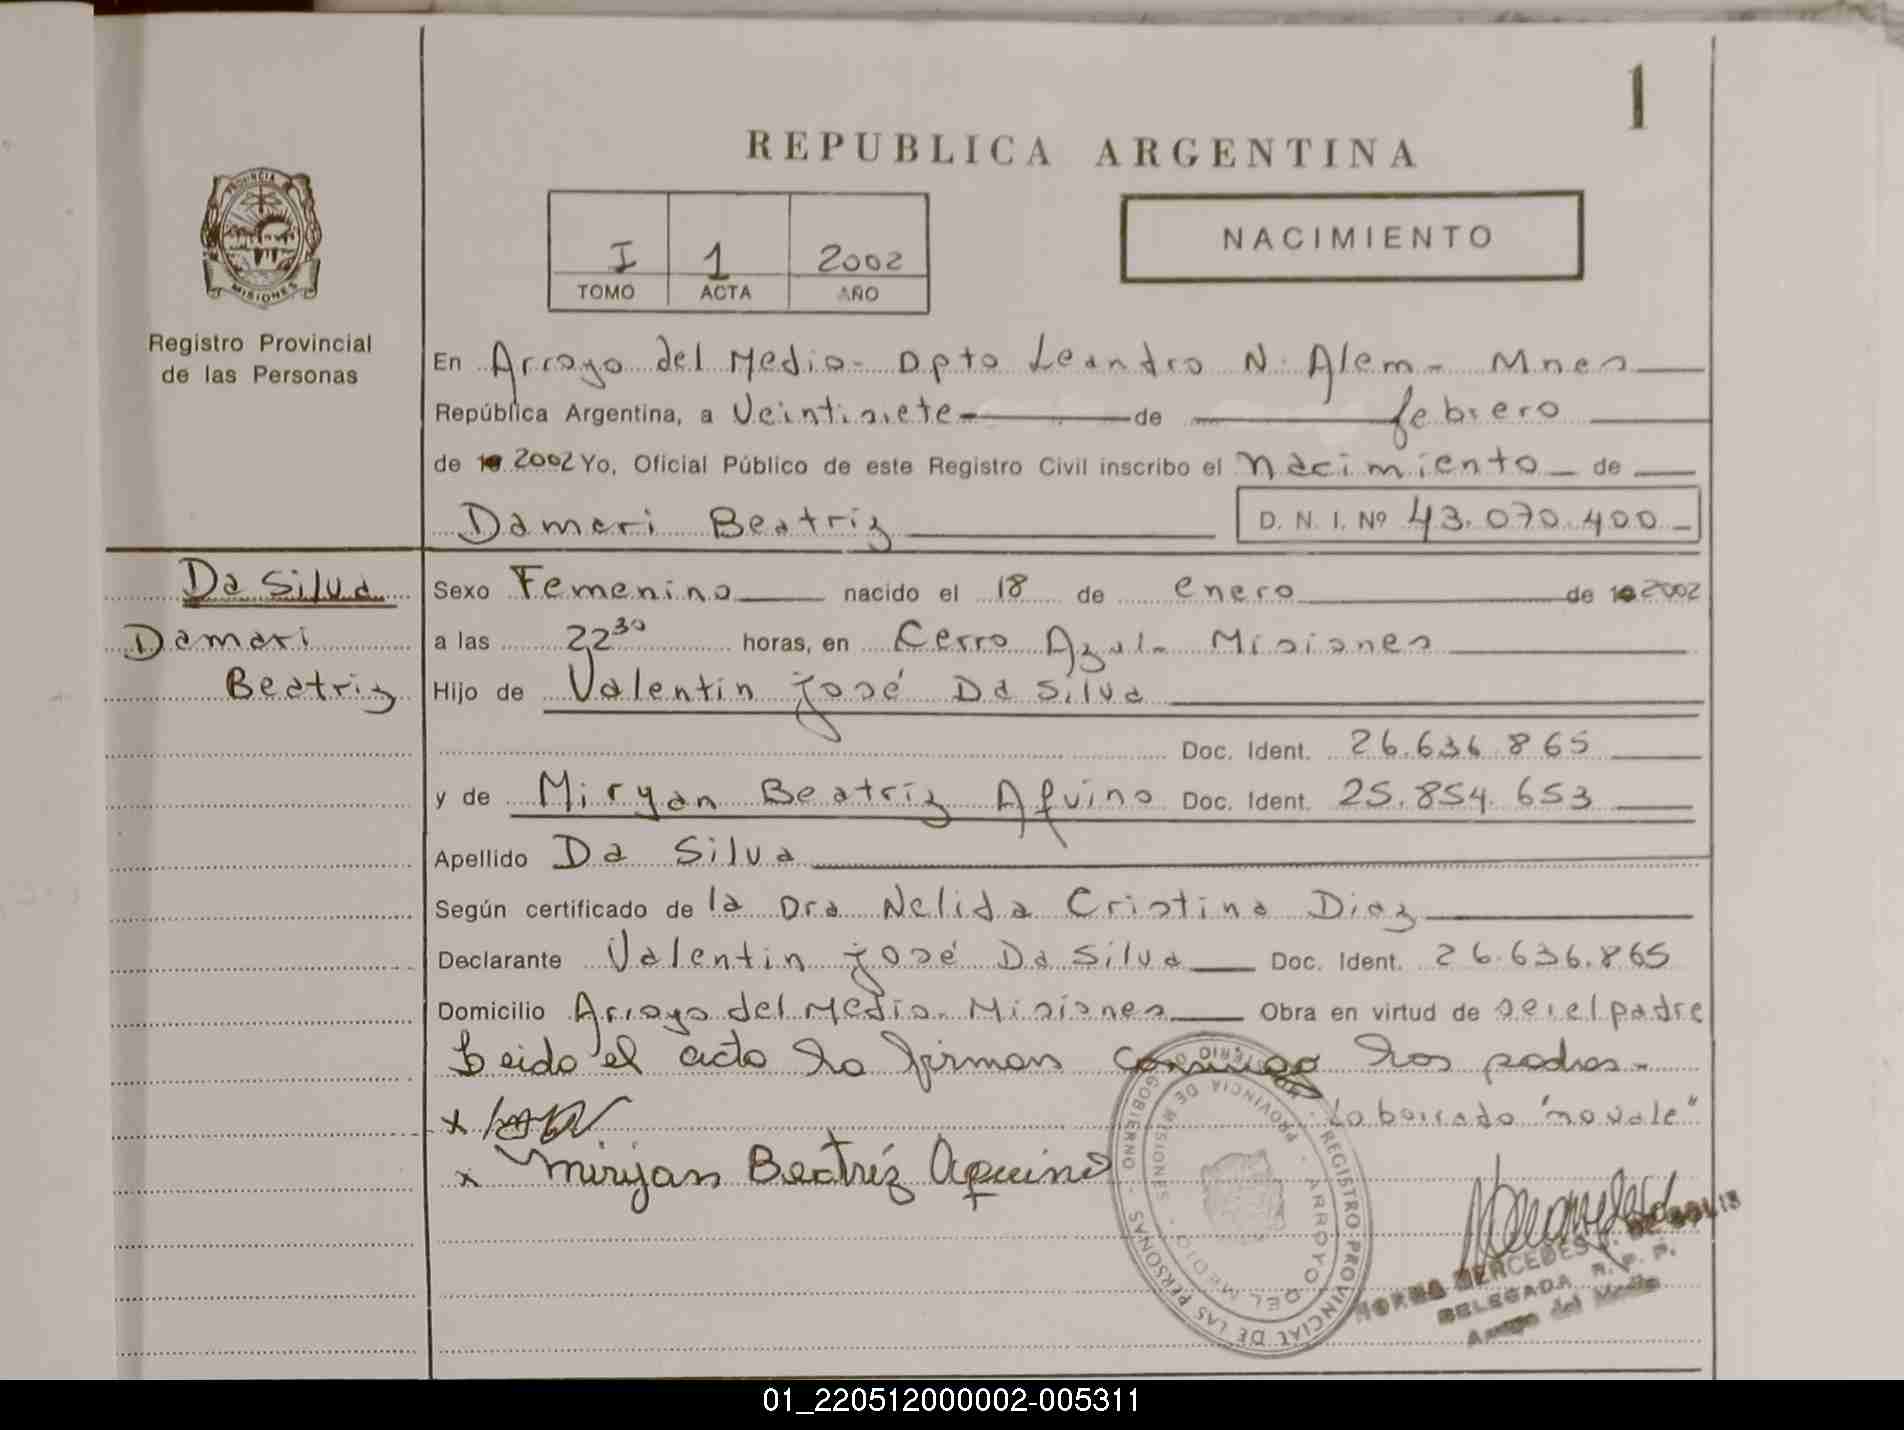 1
REPUBLICA ARGENTINA
PROVINCIA DE MISIONES
Registro Provincial
de las Personas
I 1 2002
TOMO ACTA AÑO
NACIMIENTO
En Arroyo del Medio - Dpto Leandro N. Alem - Mnes
República Argentina, a Veintisiete de febrero
de 2002 Yo, Oficial Público de este Registro Civil inscribo el Nacimiento de
Damari Beatriz D. N. I. Nº 43.070.400
Da Silva
Damari
Beatriz
Sexo Femenino nacido el 18 de enero de 2002
a las 22 30 horas, en Cerro Azul - Misiones
Hijo de Valentin José Da Silva
Doc. Ident. 26.636.865
y de Miryan Beatriz Aquino Doc. Ident. 25.854.653
Apellido Da Silva
Según certificado de la Dra Nelida Cristina Diaz
Declarante Valentin José Da Silva Doc. Ident. 26.636.865
Domicilio Arroyo del Medio - Misiones Obra en virtud de ser el padre
Leido el acta la firman conmigo los padres -
x Lo borrado "no vale"
x Miriyan Beatríz Aquino
MINISTERIO DE GOBIERNO - REGISTRO PROVINCIAL DE LAS PERSONAS
PROVINCIA DE MISIONES - ARROYO DEL MEDIO
NORMA MERCEDES DE SOLIS
DELEGADA R. P. P.
Arroyo del Medio
01_220512000002-005311